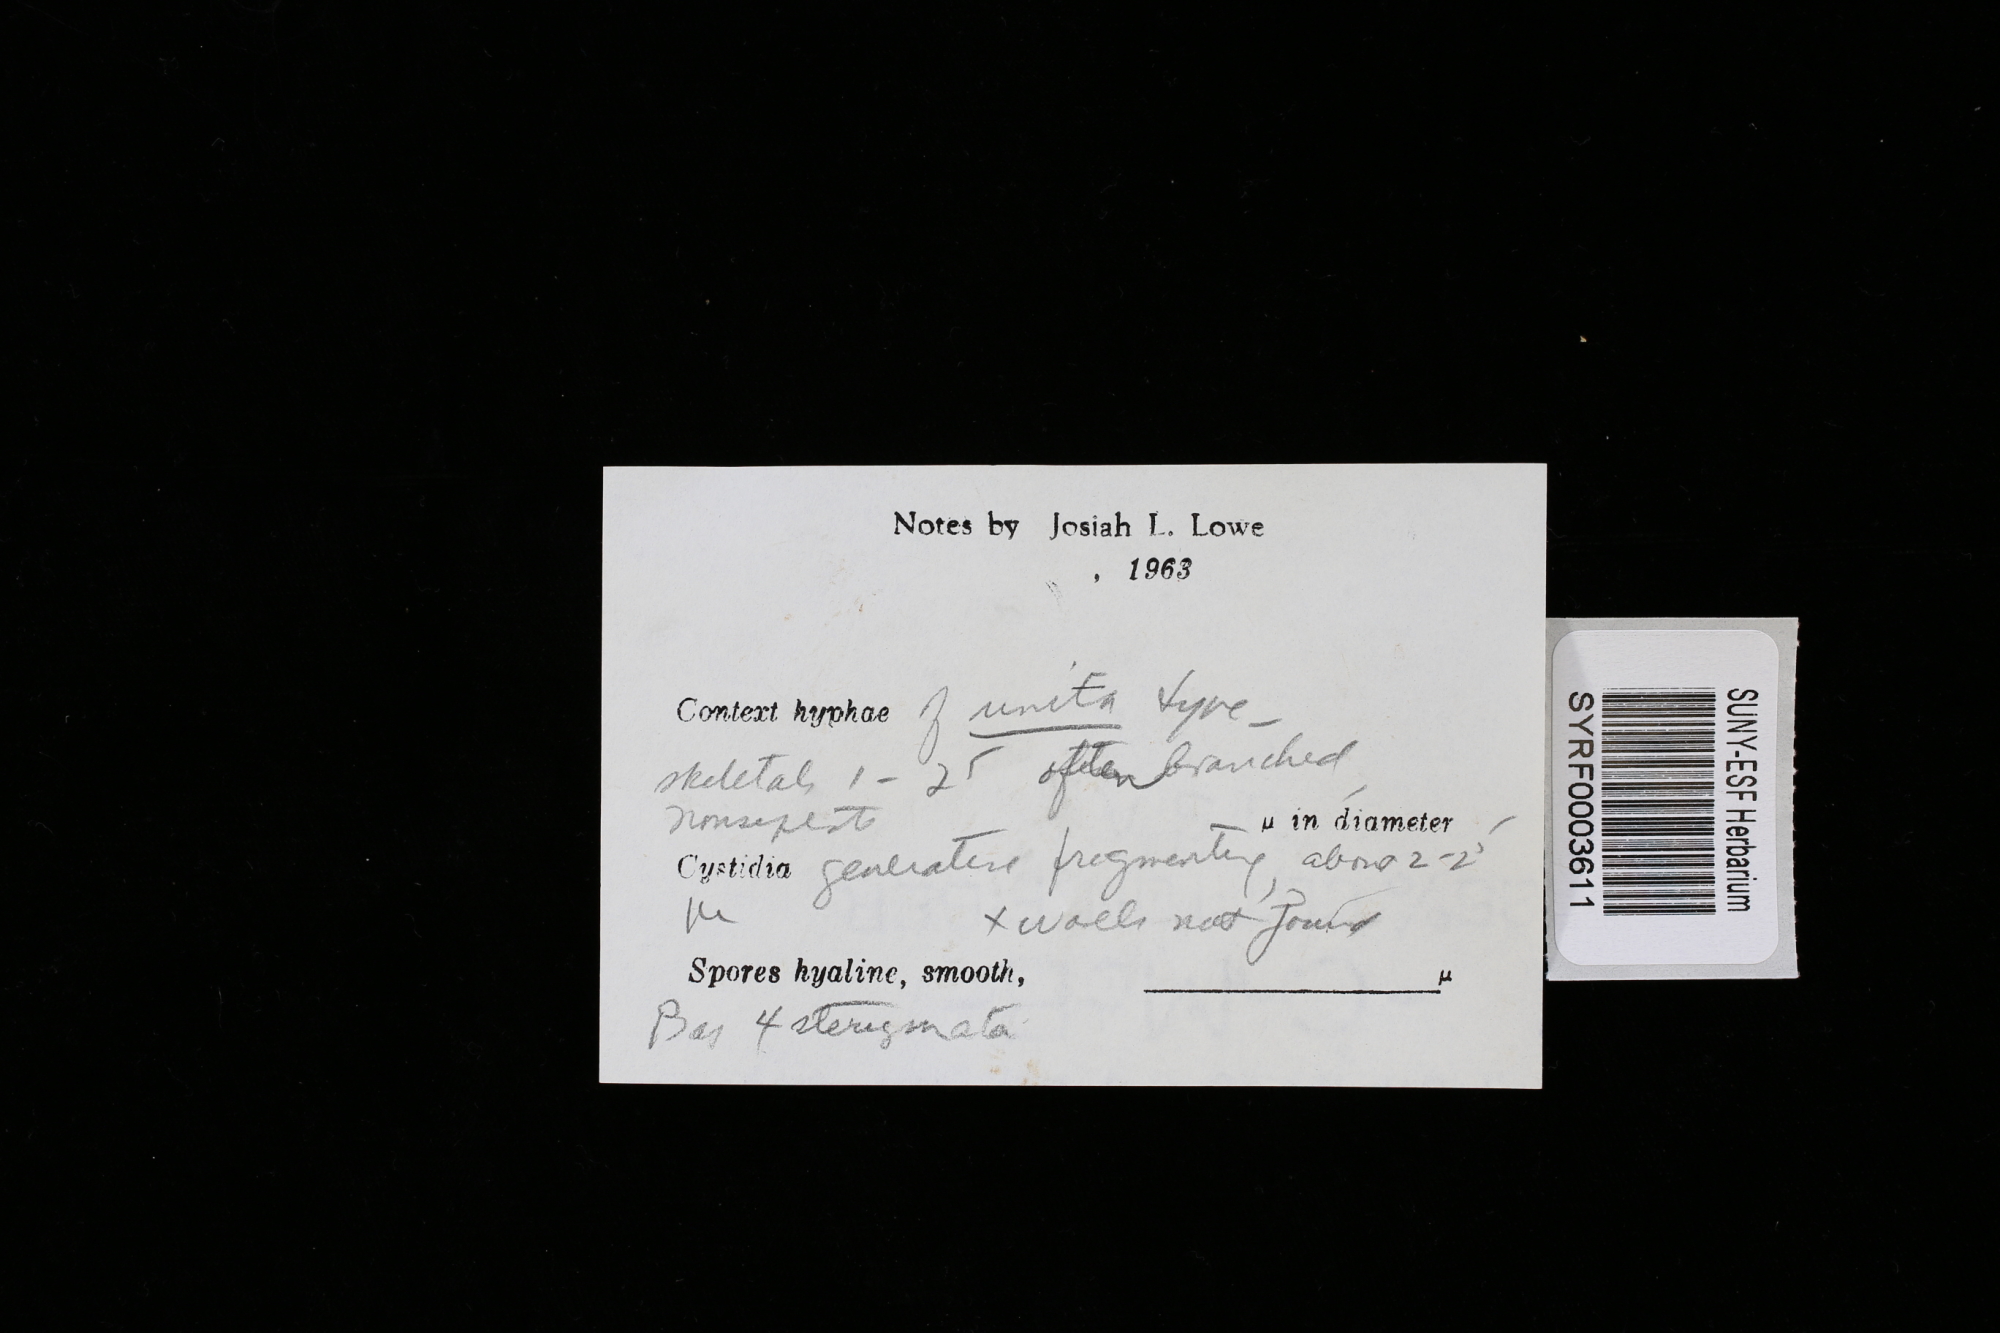 Notes by Josiah L. Lowe
, 1963
Context hyphae of unita type -
skeletals 1 - 2⁵ often branched
nonseptate μ in diameter
Cystidia generative fragmenting, about 2-2⁵
μ x walls not found
Spores hyaline, smooth, μ
Bas 4 sterigmata
SUNY-ESF Herbarium
SYRF0003611